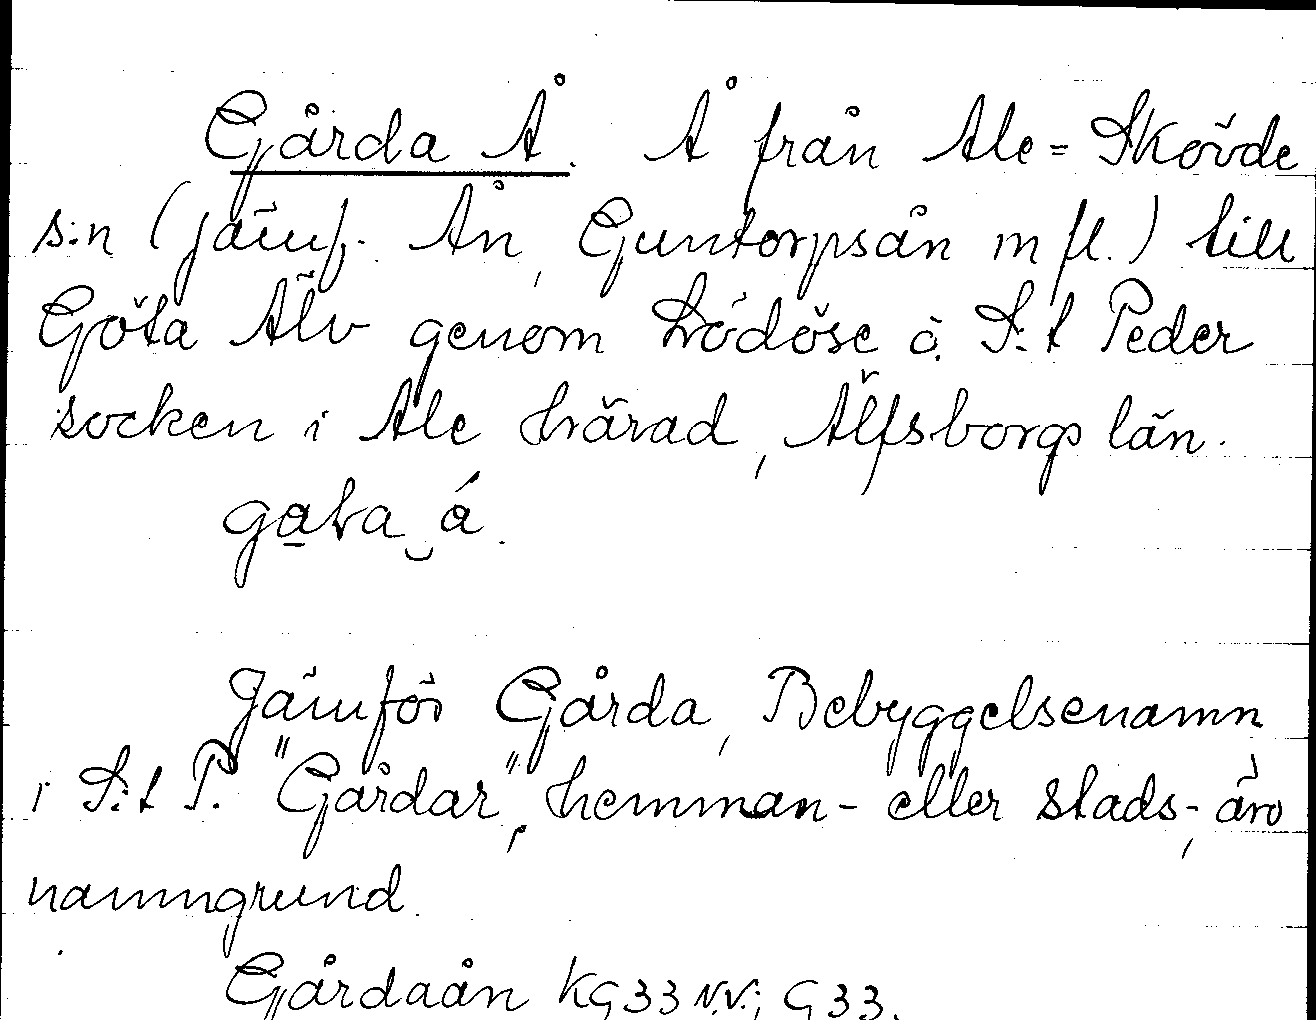 Gårda Å. Å från Ale=Skövde
s:n (jämf. Ån, Guntorpsån m fl.) till
Göta Älv genom Lödöse o. S:t Peder
socken i Ale härad, Älfsborgs län.
Jämför Gårda, Bebyggelsenamn
i S:t P. "Gårdar", hemman- eller stads-, äro
namngrund.
Gårdaån KG33 N.V.; G33.